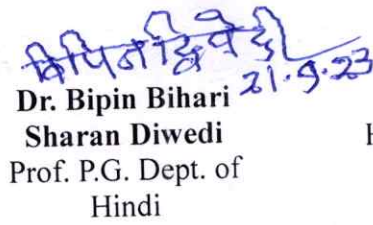 बिपिन द्विवेदी
21.9.23
Dr. Bipin Bihari
Sharan Diwedi
Prof. P.G. Dept. of
Hindi